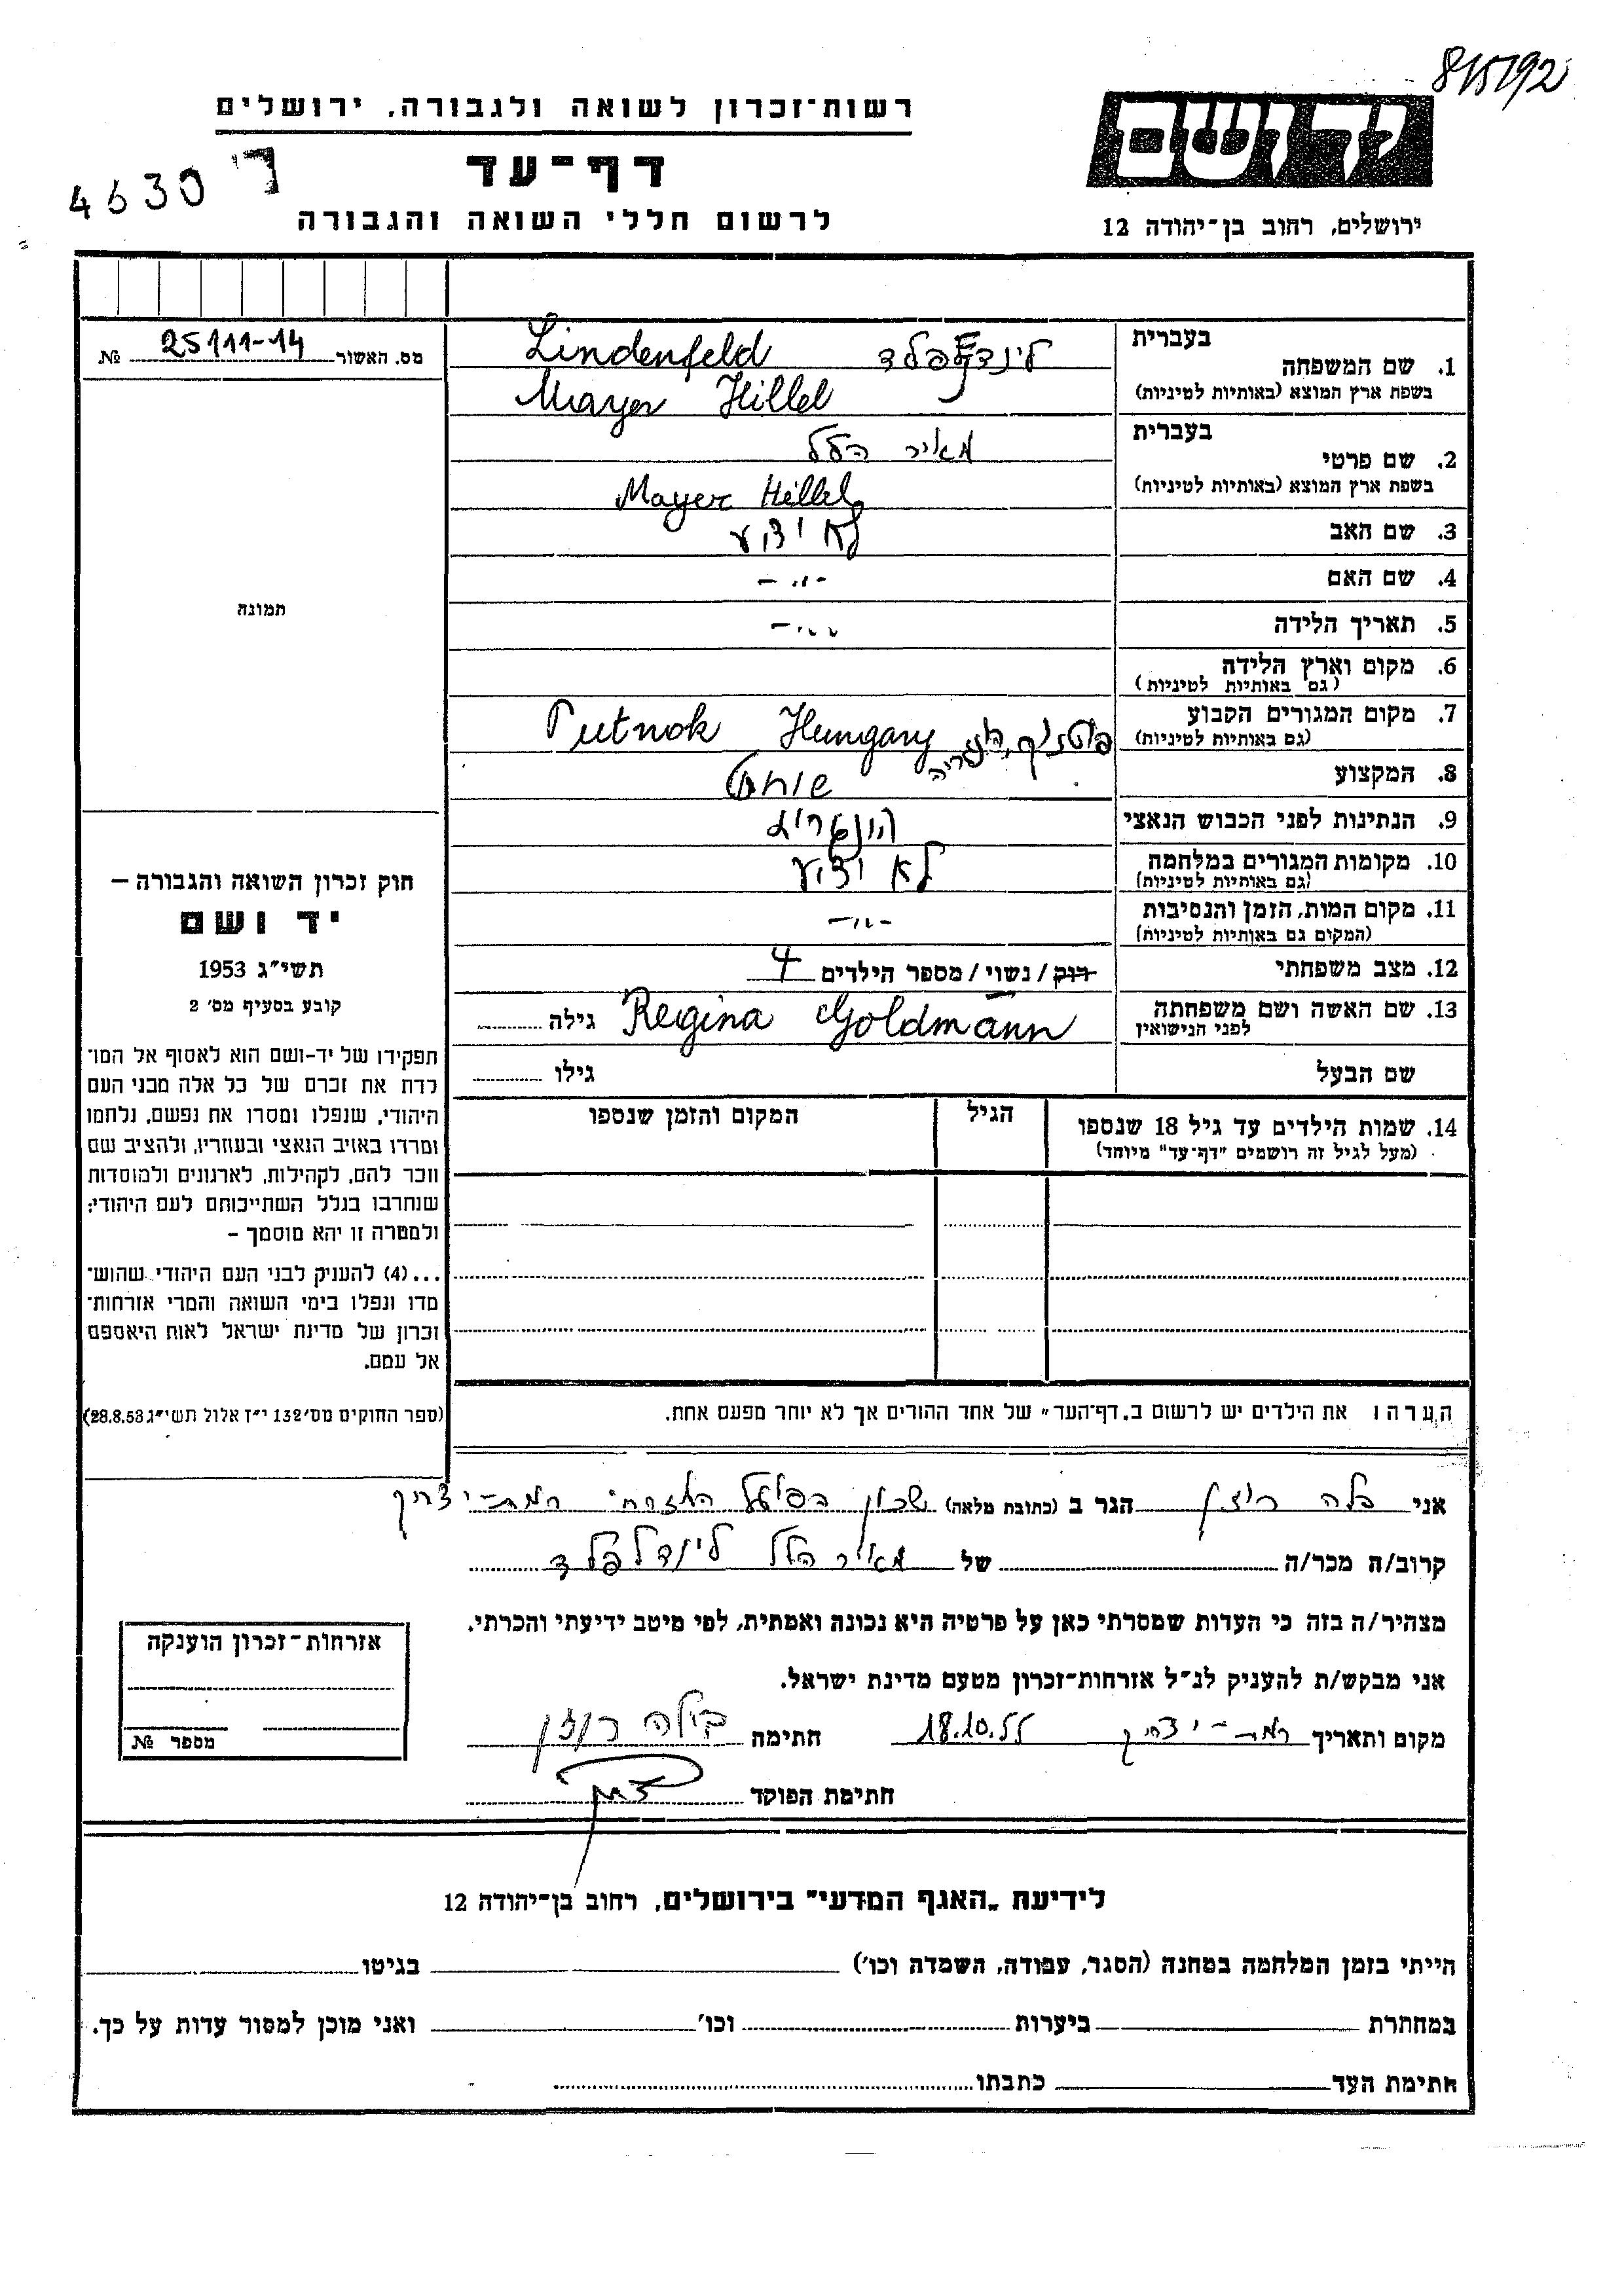 815792
רשות־זכרון לשואה ולגבורה, ירושלים
יד ושם
דף־עד
4630
לרשום חללי השואה והגבורה
ירושלים, רחוב בן־יהודה 12
מס. האשור 25111-14 №
תמונה
חוק זכרון השואה והגבורה –
יד ושם
תשי״ג 1953
קובע בסעיף מס׳ 2
תפקידו של יד-ושם הוא לאסוף אל המו־
לדת את זכרם של כל אלה מבני העם
היהודי, שנפלו ומסרו את נפשם, נלחמו
ומרדו באויב הנאצי ובעוזריו, ולהציב שם
וזכר להם, לקהילות, לארגונים ולמוסדות
שנחרבו בגלל השתייכותם לעם היהודי;
ולמטרה זו יהא מוסמך –
...(4) להעניק לבני העם היהודי שהוש־
מדו ונפלו בימי השואה והמרי אזרחות־
זכרון של מדינת ישראל לאות היאספם
אל עמם.
(ספר החוקים מס׳ 132 י״ז אלול תשי״ג 28.8.53)
בעברית
1. שם המשפחה לינדנפלד Lindenfeld
בשפת ארץ המוצא (באותיות לטיניות) Mayer Hillel
בעברית
2. שם פרטי מאיר הלל
בשפת ארץ המוצא (באותיות לטיניות) Mayer Hillel
3. שם האב לא ידוע
4. שם האם -״-
5. תאריך הלידה -״-
6. מקום וארץ הלידה
(גם באותיות לטיניות)
7. מקום המגורים הקבוע Putnok Hungary
(גם באותיות לטיניות)
8. המקצוע שוחט
9. הנתינות לפני הכבוש הנאצי
10. מקומות המגורים במלחמה לא ידוע
(גם באותיות לטיניות)
11. מקום המות, הזמן והנסיבות -״-
(המקום גם באותיות לטיניות)
12. מצב משפחתי רוק / נשוי / מספר הילדים 4
13. שם האשה ושם משפחתה Regina Goldmann גילה
לפני הנישואין
שם הבעל גילו
14. שמות הילדים עד גיל 18 שנספו הגיל המקום והזמן שנספו
(מעל לגיל זה רושמים "דף־עד" מיוחד)
הערה: את הילדים יש לרשום ב„דף־העד״ של אחד ההורים אך לא יותר מפעם אחת.
אני בלה רוזן הגר ב (כתובת מלאה) שכון הפועל המזרחי רמת-יצחק
קרוב/ה מכר/ה של מאיר הלל לינדלפלד
מצהיר/ה בזה כי העדות שמסרתי כאן על פרטיה היא נכונה ואמתית, לפי מיטב ידיעתי והכרתי.
אני מבקש/ת להעניק לנ״ל אזרחות־זכרון מטעם מדינת ישראל.
מקום ותאריך רמת-יצחק 18.10.55 חתימה בילה רוזן
חתימת הפוקד
אזרחות־זכרון הוענקה
מספר №
לידיעת „האגף המדעי״ בירושלים, רחוב בן־יהודה 12
הייתי בזמן המלחמה במחנה (הסגר, עבודה, השמדה וכו׳) בגיטו
במחתרת ביערות וכו׳ ואני מוכן למסור עדות על כך.
חתימת העד כתבתו